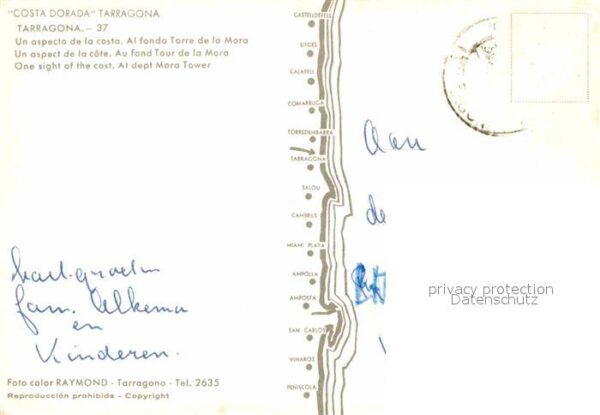 "COSTA DORADA" TARRAGONA
TARRAGONA. - 37
Un aspecto de la costa. Al fondo Torre de la Mora
Un aspect de la côte. Au fond Tour de la Mora
One sight of the cost. At dept Mora Tower
CASTELLDEFELS
SITGES
CALAFELL
COMARRUGA
TORREDEMBARRA
TARRAGONA
SALOU
CAMBRILS
MIAMI PLAYA
AMPOLLA
AMPOSTA
SAN CARLOS
VINAROZ
PEÑISCOLA
Aan
de
privacy protection
Datenschutz
hart. groeten
fam. Elkema
en
Kinderen.
Foto color RAYMOND - Tarragona - Tel. 2635
Reproducción prohibida - Copyright